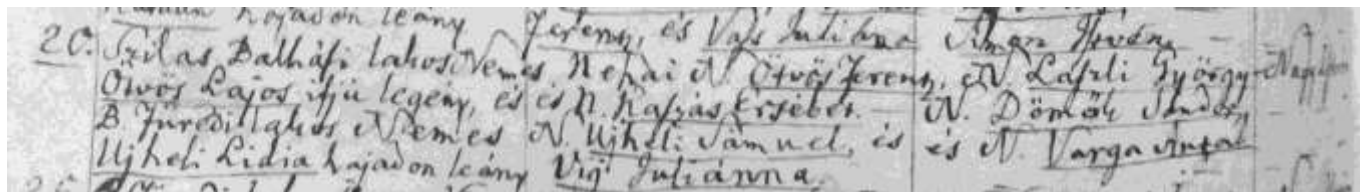 hajadon leány Ferencz, és Vajs Juliánna Simon István
20. Szilas Balhási lakos Nemes Nehai N. Ötvös Ferencz, N. László György
Ötvös Lajos ifjú legény, és és N. Kaszás Ersébet. N. Dömök Sándor,
B. Füredi lakos Nemes N. Ujheli Sámuel, és és N. Varga Antal
Ujheli Lidia hajadon leány Vig Juliánna.